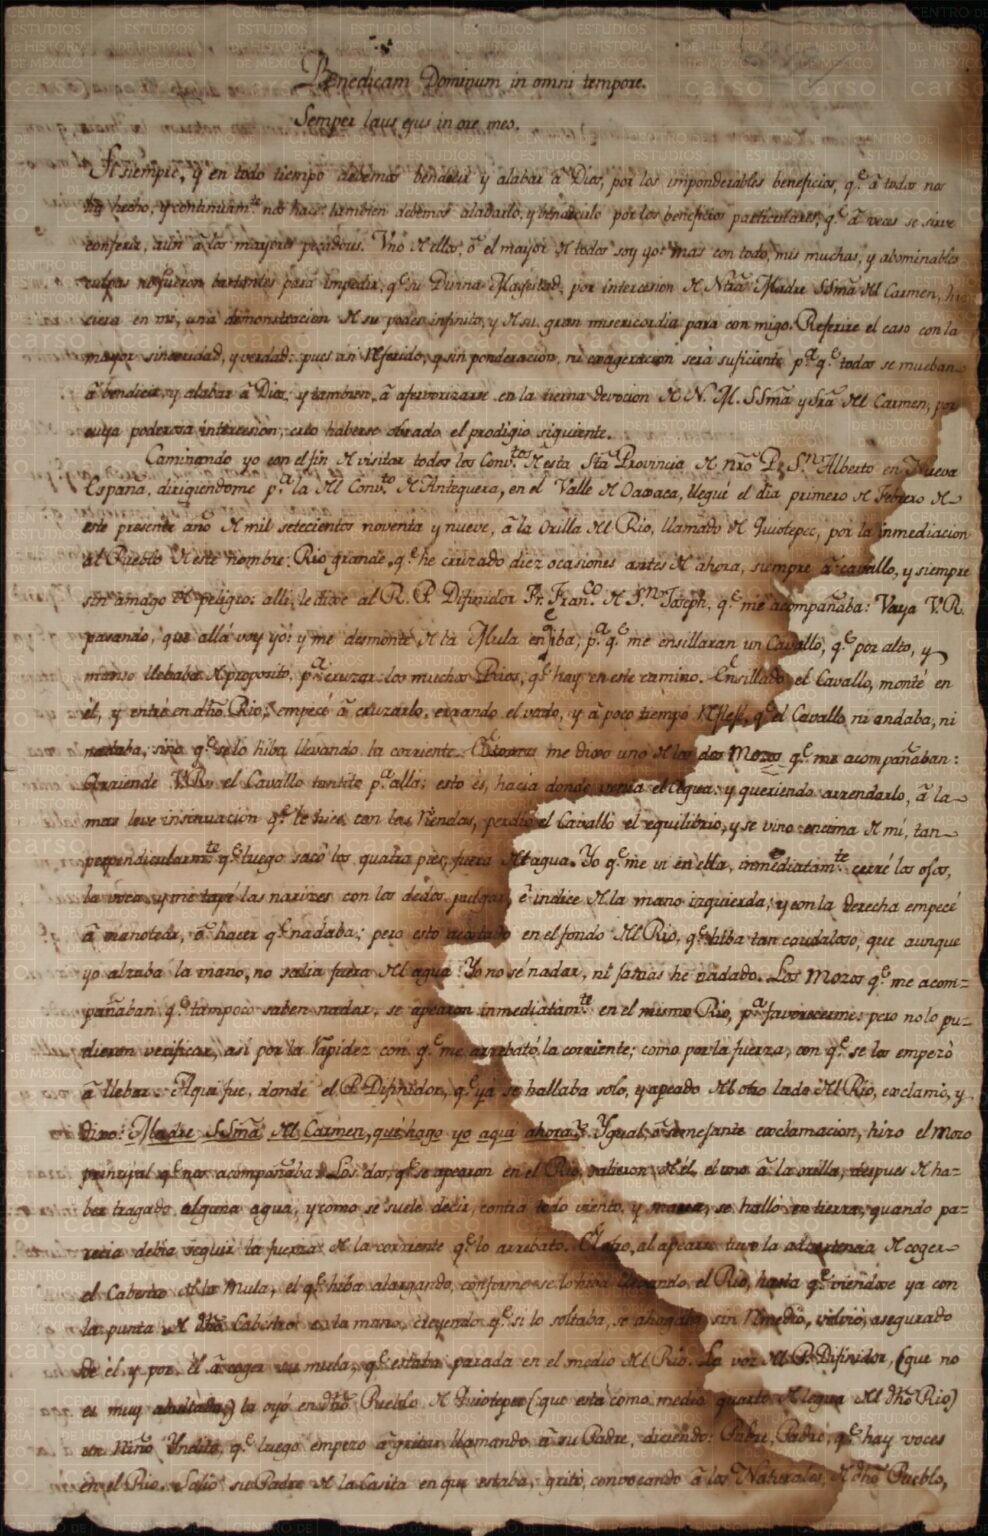 Benedicam Dominum in omni tempore.
Semper laus ejus in ore meo.
Si siempre, q.e en todo tiempo debemos bendecir y alabar â Dios, por los imponderables beneficios, q.e â todos nos
ha hecho, y continuam.te nos hace: tambien debemos alabarlo, y bendecirlo por los beneficios particulares, q.e â veces se sirve
conferir, aun â los mayores pecadores. Vno de ellos, ô el mayor de todos soy yo: mas con todo, mis muchas, y abominables
culpas no fueron bastantes para impedir, q.e su Divina Magestad, por intercesion de Ntra. Madre SSma. del Carmen, hi-
ciera en mi, una demonstracion de su poder infinito, y de su gran misericordia para con migo. Referire el caso con la
mayor sinceridad, y verdad: pues asi referido, y sin ponderacion, ni exageracion será suficiente p.a q.e todos se mueban
â bendecir, y alabar â Dios, y tambien, â afervorizarse en la tierna devocion de N. M. SSma. y Sra. del Carmen, por
cuya poderosa intercesion, creo haberse obrado el prodigio siguiente.
Caminando yo con el fin de visitar todos los Conv.tos de esta Sta. Provincia de nro. P. S.n Alberto en Nueva
España, dirigiendome p.a la del Conv.to de Antequera, en el Valle de Oaxaca, llegué el dia primero de Febrero de
este presente año de mil setecientos noventa y nueve, â la orilla del Rio, llamado de Quiotepec, por la inmediacion
al Pueblo de este nombre: Rio grande, q.e he cruzado diez ocasiones antes de ahora, siempre â cavallo, y siempre
sin amago de peligro: alli, le dixe al R. P. Difinidor Fr. Fran.co de S.n Joseph, q.e me acompañaba: Vaya V. R.
pasando, que allá voy yo: y me desmonté de la Mula en q.e iba, p.a q.e me ensillaran un Cavallo, q.e por alto, y
manso llebaba de proposito, p.a cruzar los muchos Rios, q.e hay en este camino. Ensillado el Cavallo, monté en
él, y entre en dho. Rio: empecé â cruzarlo, errando el vado, y â poco tiempo reflexé, q.e el Cavallo ni andaba, ni
nadaba, sino q.e se lo hiba llevando la corriente. Entonces me dixo uno de los dos Mozos q.e me acompañaban:
Atraiende V.R. el Cavallo tantito p.a alla: esto es, hacia donde venia el Agua: y queriendo arrendarlo, â la
mas leve insinuacion q.e le hice con las riendas, perdió el Cavallo el equilibrio, y se vino encima de mí, tan
perpendicularm.te q.e luego sacó los quatro pies, fuera del agua. Yo q.e me vi en ella, inmediatam.te cerré los ojos,
la voca, y me tapé las narizes con los dedos pulgar, ê indice de la mano izquierda; y con la derecha empecé
â manotear, ô hacer q.e nadaba; pero esto acostado en el fondo del Rio, q.e hiba tan caudaloso, que aunque
yo alzaba la mano, no salia fuera del agua. Yo no sé nadar, ni jamas he nadado. Los Mozos q.e me acom-
pañaban, q.e tampoco saben nadar, se apearon inmediatam.te en el mismo Rio, p.a favorecerme: pero no lo pu-
dieron verificar, asi por la rapidez con q.e me arrebató la corriente; como por la fuerza, con q.e se los empezó
â llebar. Aqui fue, donde el P. Difinidor, q.e ya se hallaba solo, y apeado del otro lado del Rio, exclamó, y
dixo: Madre SSma. del Carmen, qué hago yo aqui ahora? Ygual, ô semejante exclamacion, hizo el Mozo
principal q.e nos acompañaba. Los dos, q.e se apearon en el Rio, salieron de él, el uno â la orilla, despues de ha-
ber tragado alguna agua, y como se suele decir, contra todo viento, y marea, se halló en tierra, quando pa-
recia debia seguir la fuerza de la corriente q.e lo arrebato. El otro, al apearse tuvo la advertencia de coger
el Cabestro de la Mula, el q.e hiba alargando, conforme se lo hiba llevando el Rio, hasta q.e viendose ya con
la punta de dho. Cabestro en la mano, creyendo q.e si lo soltaba, se ahogaba sin remedio, volvió, asegurado
de él, y por él â coger su mula, q.e estaba parada en el medio del Rio. La voz del P. Difinidor, (que no
es muy abultada) la oyó en dho. Pueblo de Quiotepec (que está como medio quarto de legua del dho. Rio)
un Niño Yndito, q.e luego empezo â gritar llamando â su Padre, diciendo: Padre, Padre, q.e hay voces
en el Rio. Salió su Padre de la Casita en que estaba, gritó, convocando â los Naturales de dho. Pueblo,